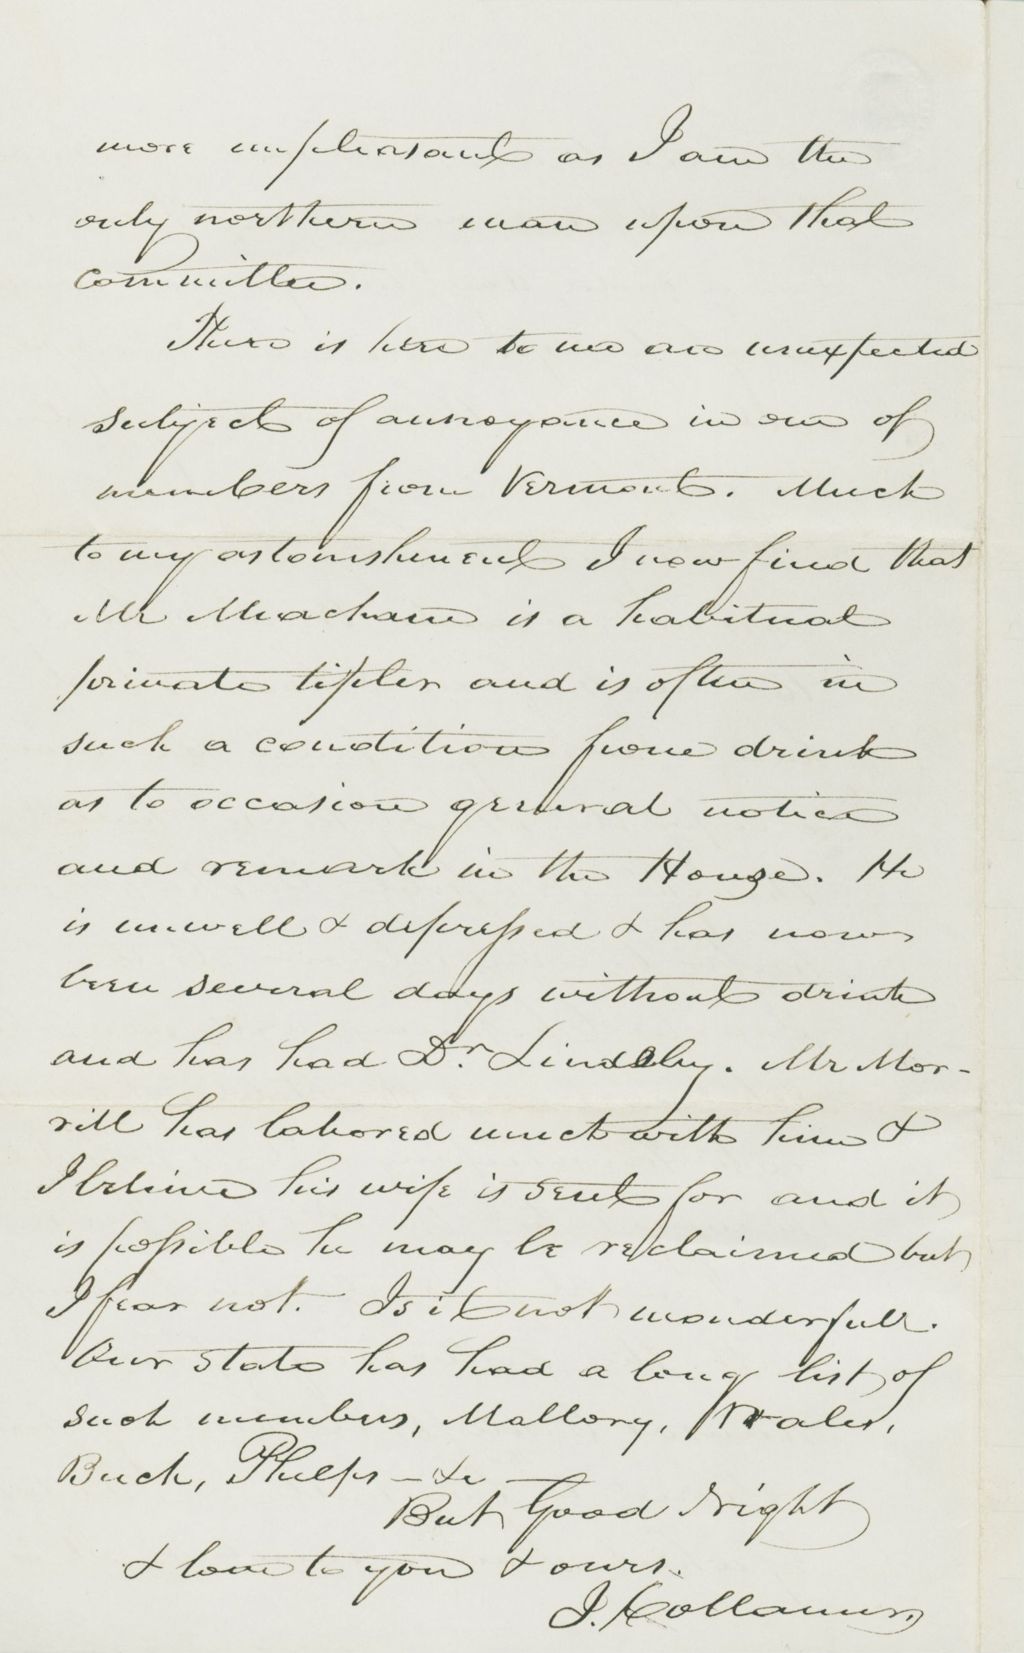 more unpleasant as I am the
only northern man upon that
committee.
There is here to me an unexpected
subject of annoyance in one of
members from Vermont. Much
to my astonishment I now find that
Mr Meacham is a habitual
private tipler and is often in
such a condition from drink
as to occasion general notice
and remark in the House. He
is unwell & depressed & has now
been several days without drink
and has had Dr. Lindsley. Mr Mor-
rill has labored much with him &
I believe his wife is sent for and it
is possible he may be reclaimed but
I fear not. Is it not wonderfull.
Our State has had a long list of
such members, Mallory, Wales,
Buck, Phelps - &c -
But Good Night
& love to you & ours.
J. Collamer.